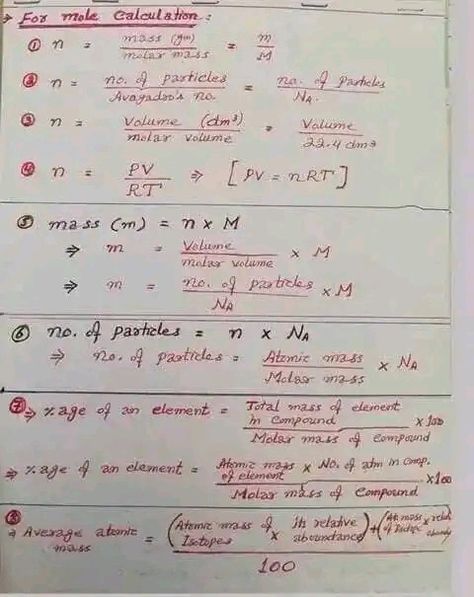 → For mole Calculation :
① n = mass (gm) / molar mass = m / M
② n = no. of particles / Avagadro's no. = no. of particles / NA.
③ n = Volume (dm³) / molar volume = Volume / 22.4 dm³
④ n = PV / RT ⇒ [PV = nRT]
⑤ mass (m) = n × M
⇒ m = Volume / molar volume × M
⇒ m = no. of particles / NA × M
⑥ no. of particles = n × NA
⇒ no. of particles = Atomic mass / Molar mass × NA
⑦ ⇒ %age of an element = Total mass of element in compound / Molar mass of compound × 100
⇒ %age of an element = Atomic mass of element × No. of atm in comp. / Molar mass of compound ×100
⑧ ⇒ Average atomic mass = (Atomic mass of Isotopes × its relative aboundance) + (At. mass of Isotope ×
100